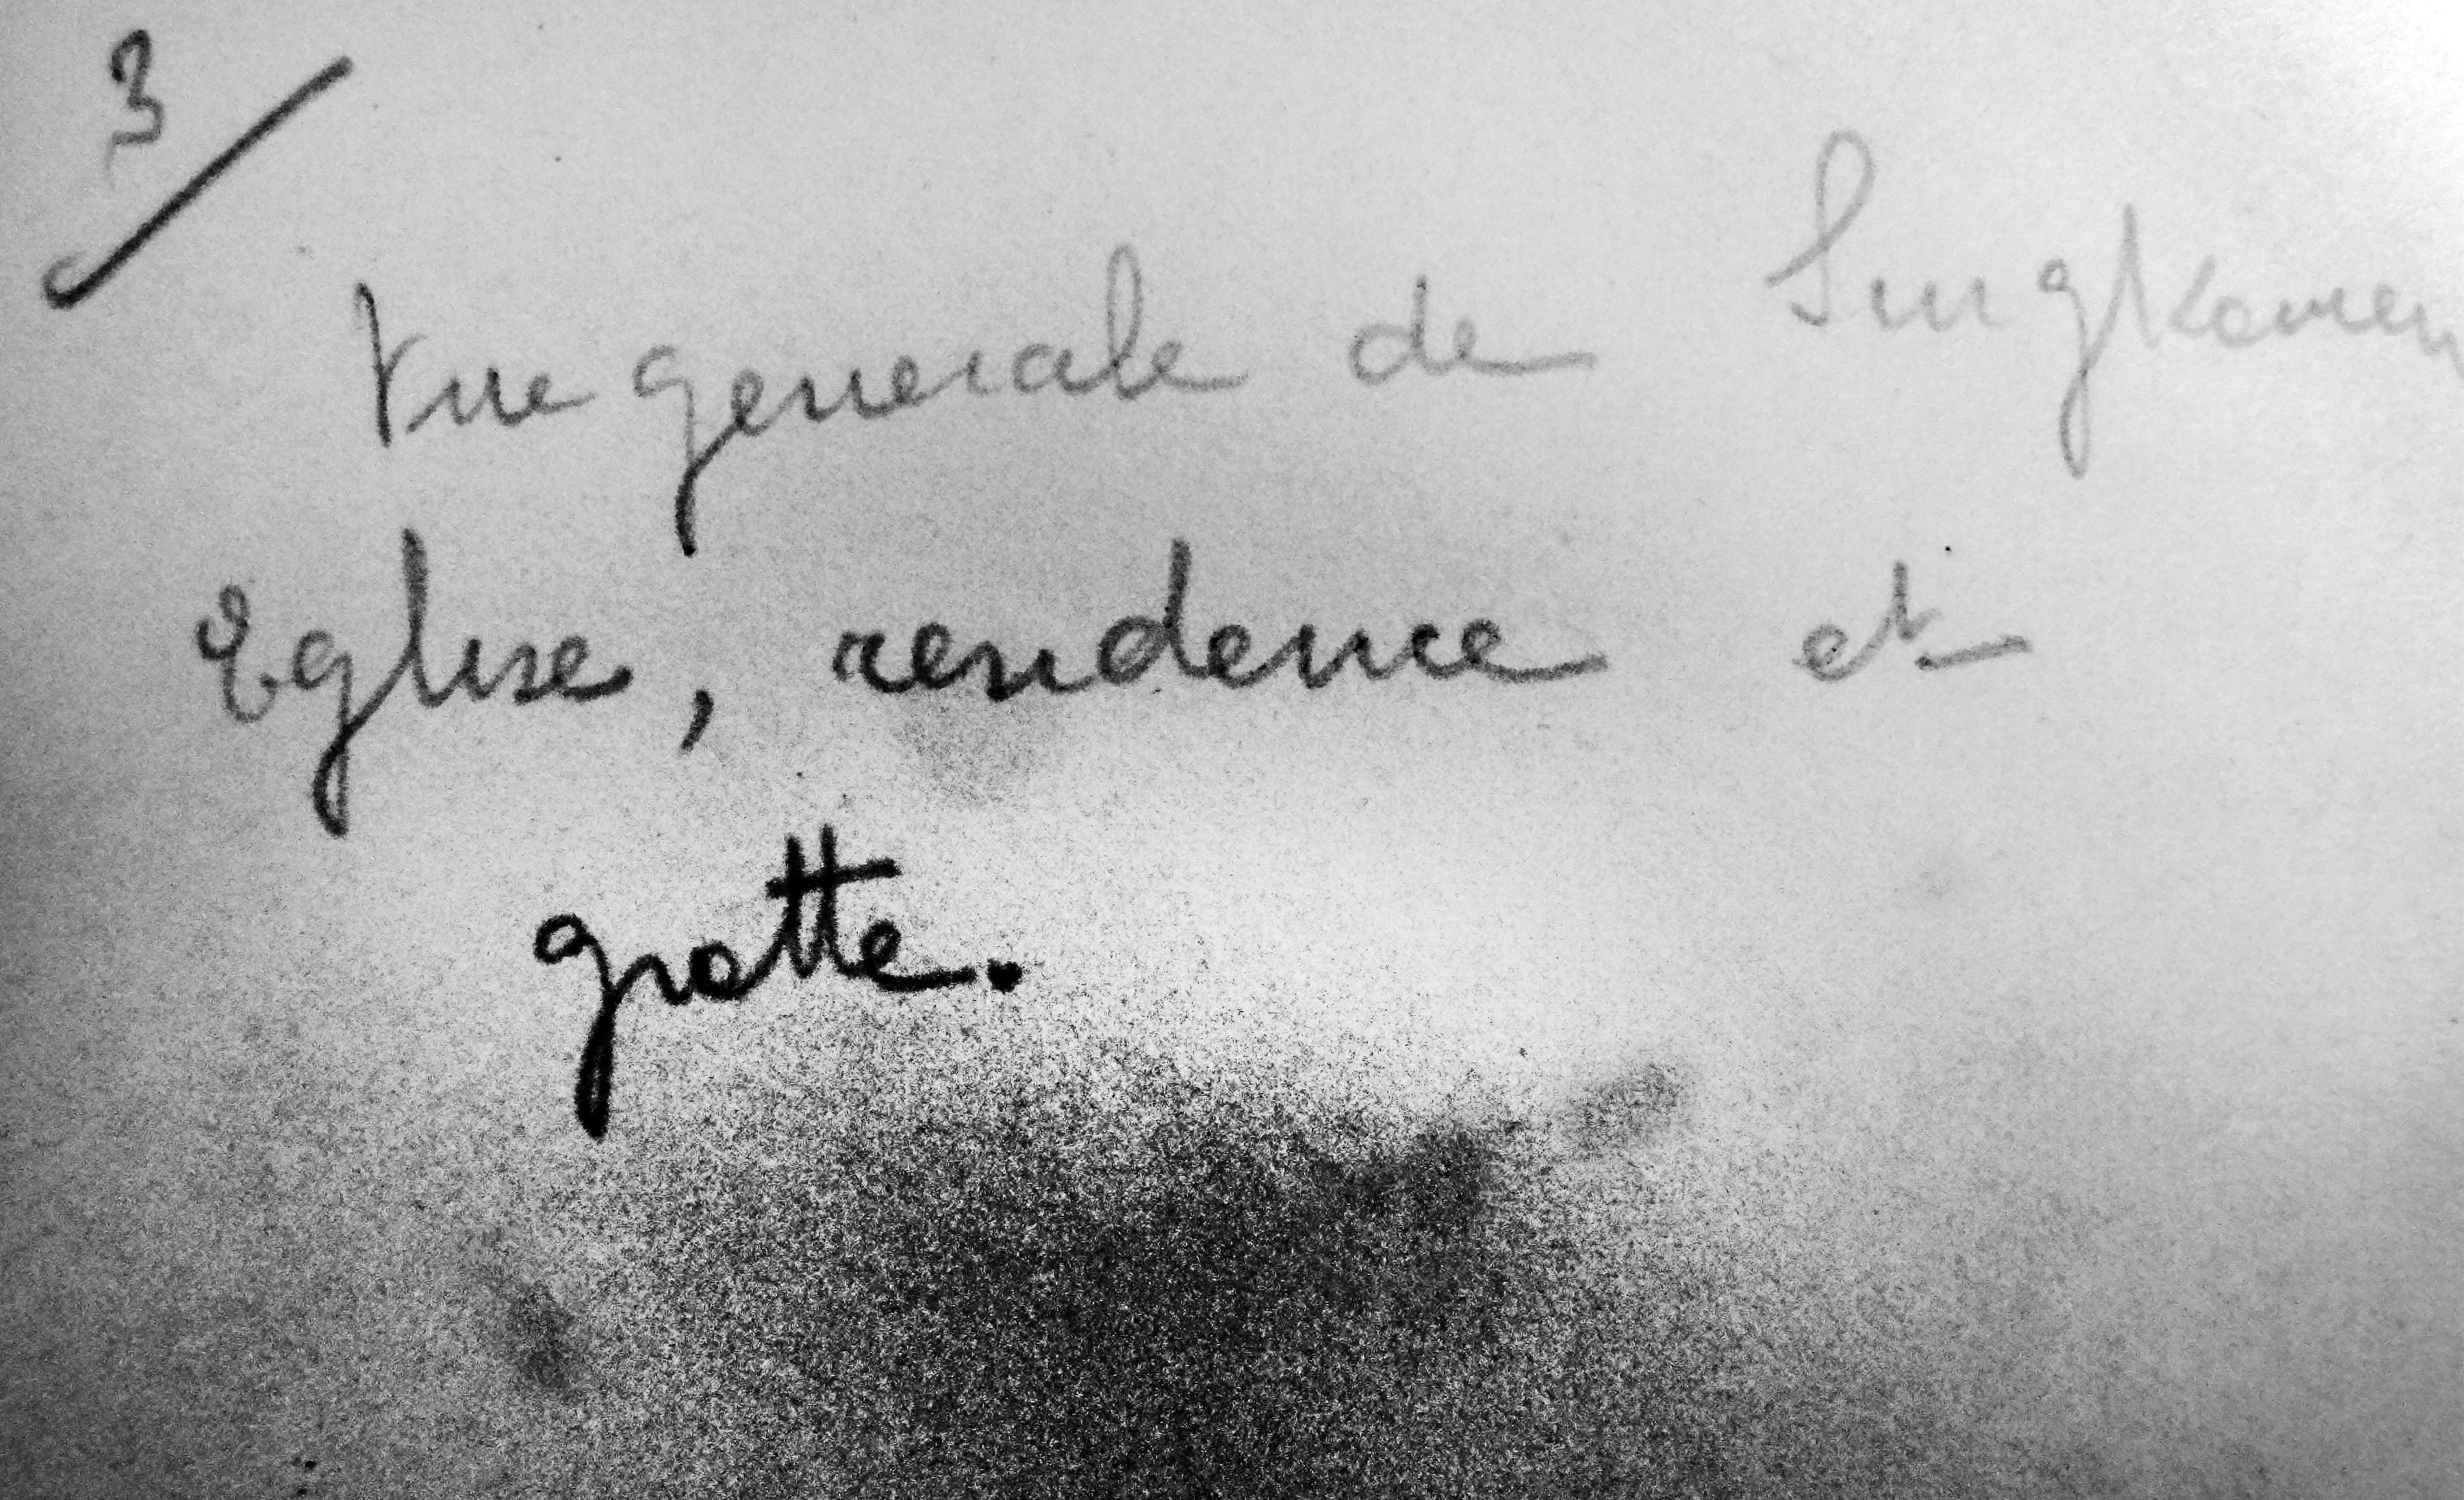 3
Vue generale de
Eglise, residence et
grotte.